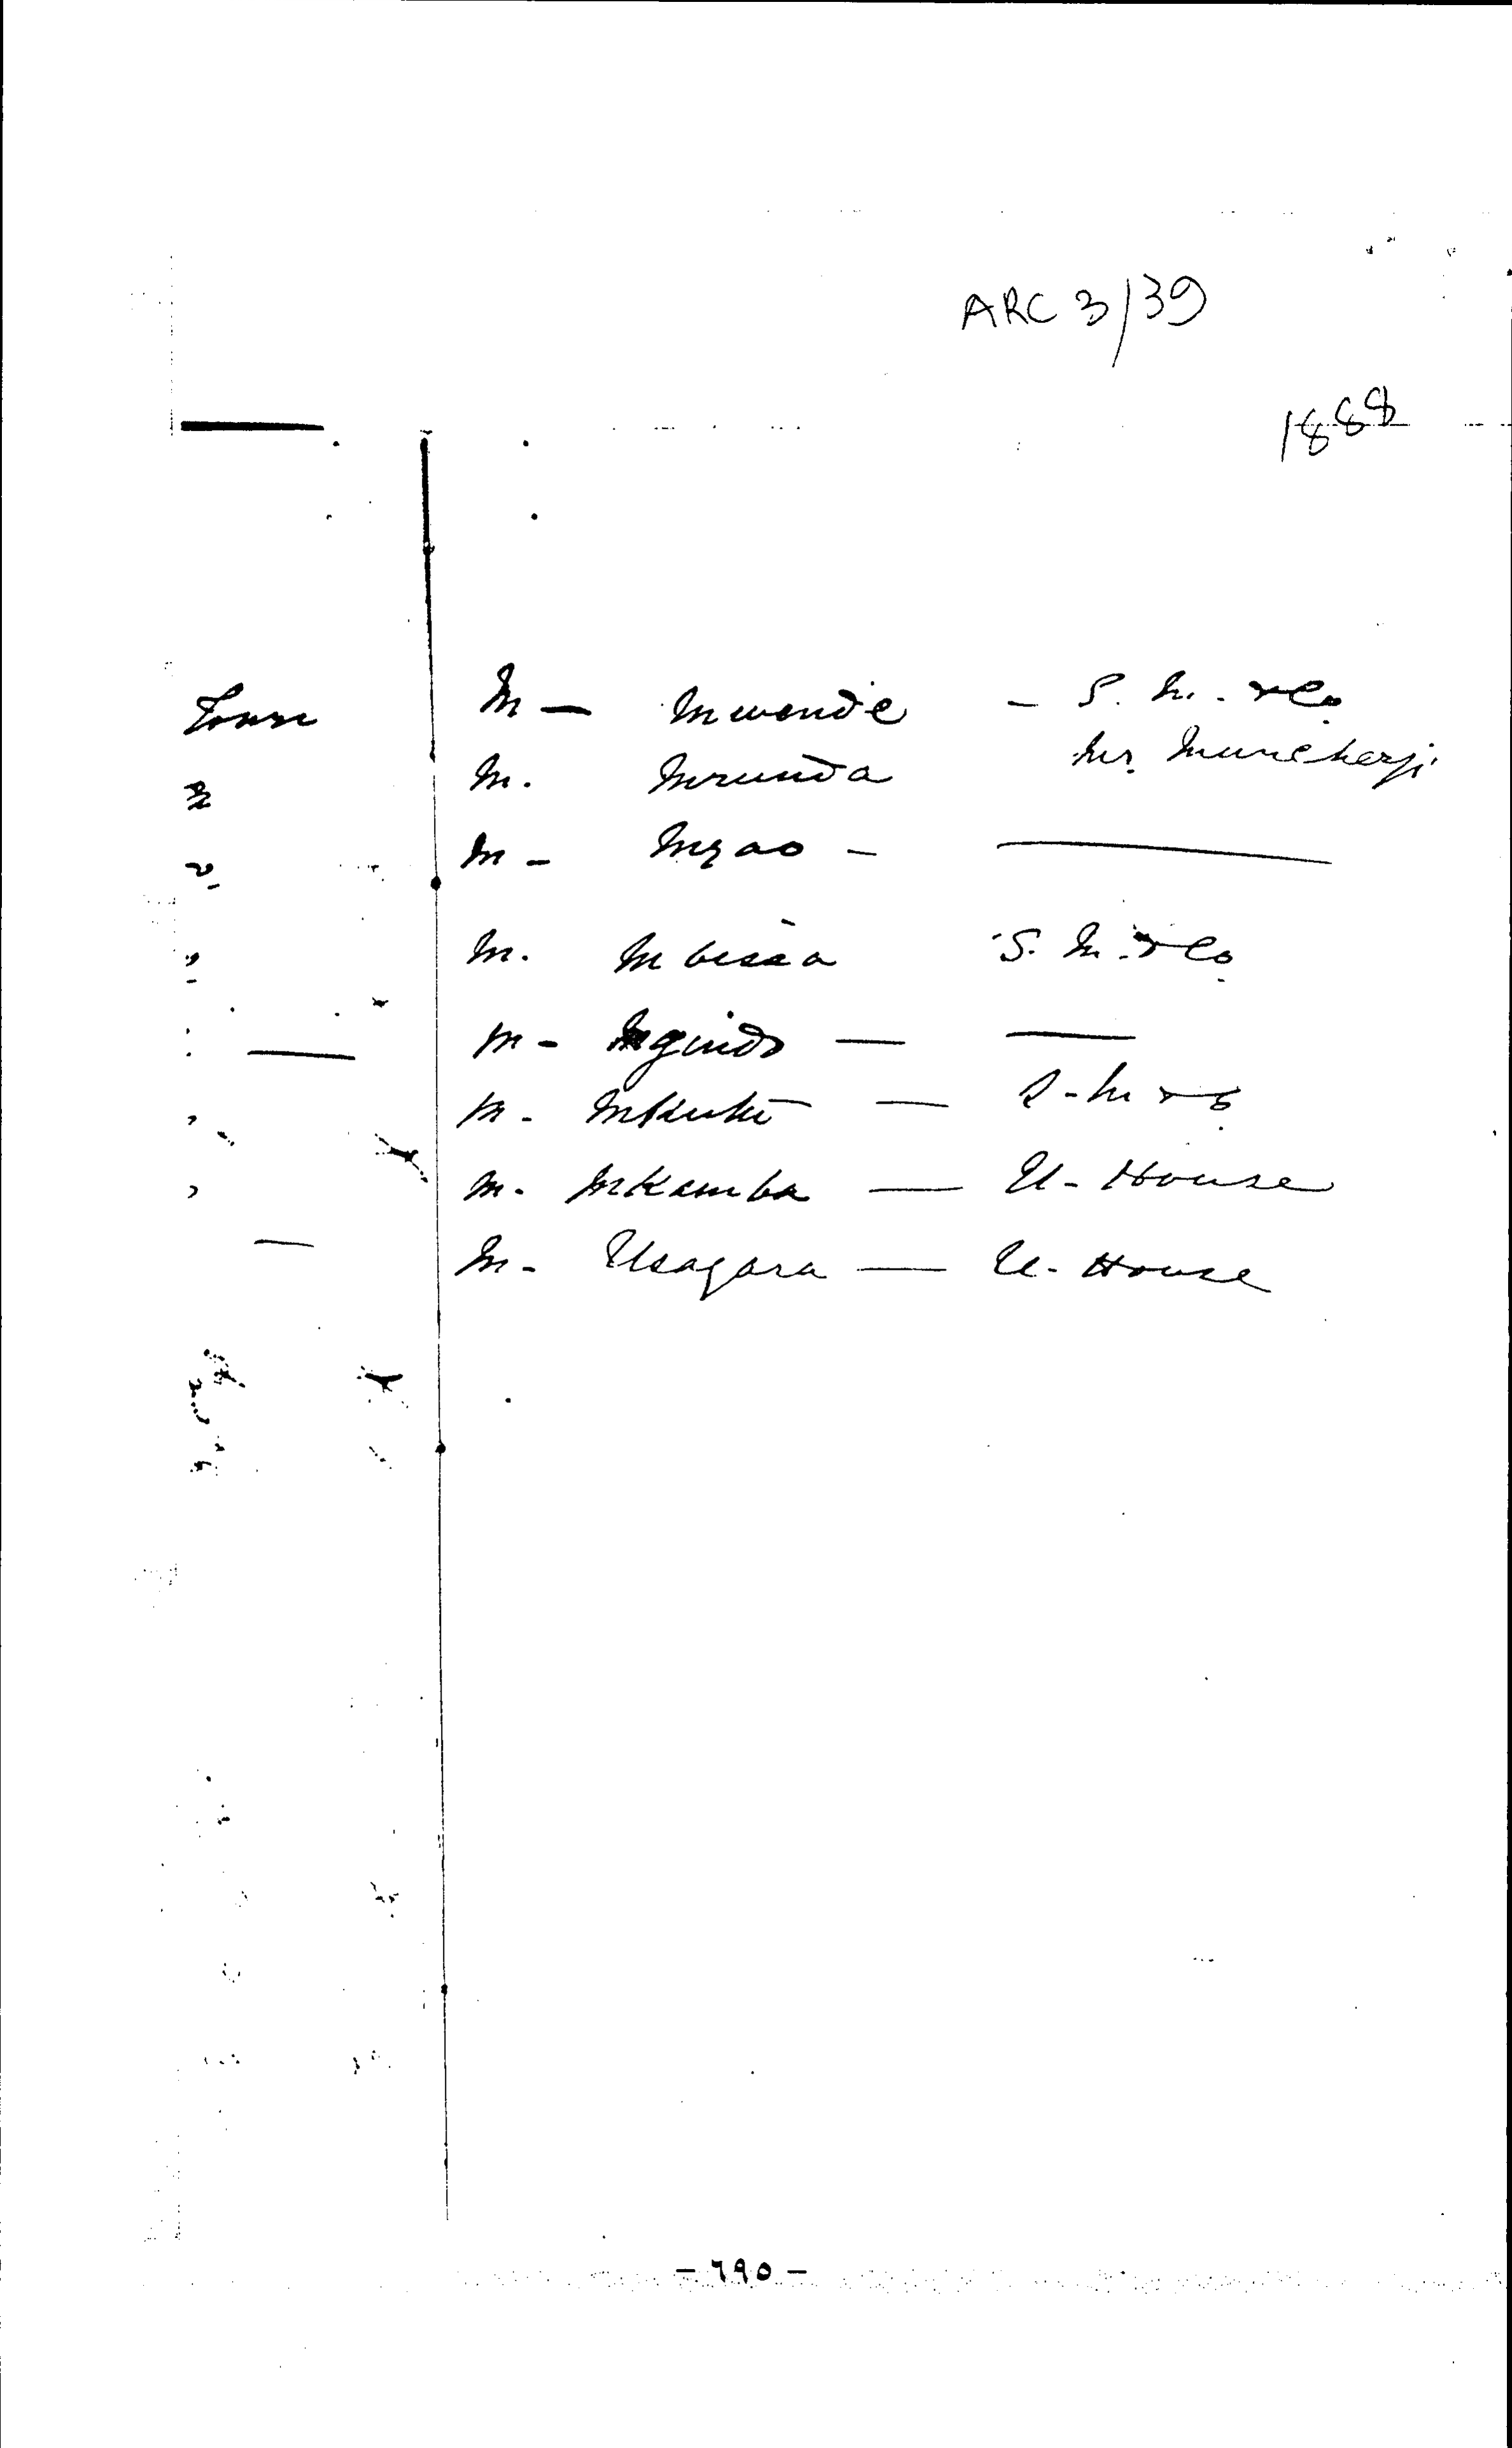 ARC 3/39
1888
Town M — Mwende — S. M. & Co
M. Mrunda Mr. Muncherji
M — Mzao — ———
M. Mbissa S. M. & Co
M — Mginds — ———
M. Mkuti — S. M & Co
M. Mkamba — U - House
M — Usagara — U - House
— ٦٩٥ —